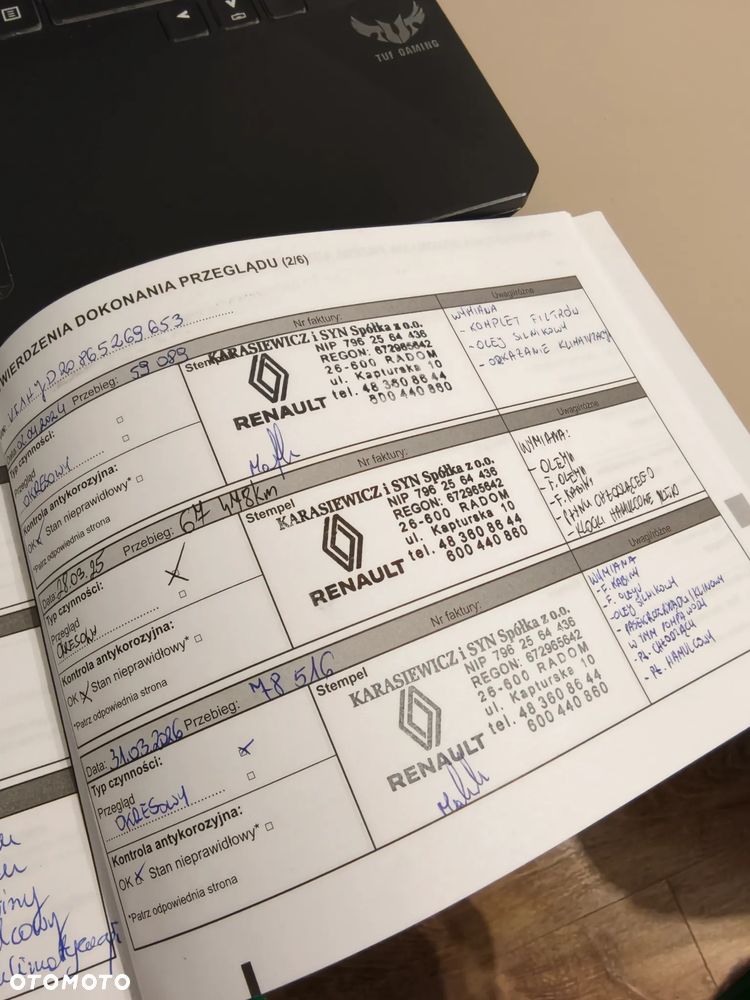 TUF GAMING
WIERDZENIA DOKONANIA PRZEGLĄDU (2/6)
Data: 02.04.2024 Przebieg: 59 089
Typ czynności:
Przegląd
OKRESOWY
Kontrola antykorozyjna:
OK Stan nieprawidłowy*
*Patrz odpowiednia strona
Stempel
Nr faktury:
KARASIEWICZ i SYN Spółka z o.o.
NIP 796 25 64 436
REGON: 672965642
26-600 RADOM
ul. Kapturska 10
tel. 48 360 86 44
600 440 860
RENAULT
Uwagi/różne
WYMIANA
- KOMPLET FILTRÓW
- OLEJ SILNIKOWY
- ODKAŻANIE KLIMATYZACJI
Data: 28.03.25 Przebieg: 67 478km
Typ czynności:
Przegląd
OKRESOWY
Kontrola antykorozyjna:
OK Stan nieprawidłowy*
*Patrz odpowiednia strona
Stempel
Nr faktury:
KARASIEWICZ i SYN Spółka z o.o.
NIP 796 25 64 436
REGON: 672965642
26-600 RADOM
ul. Kapturska 10
tel. 48 360 86 44
600 440 860
RENAULT
Uwagi/różne
WYMIANA:
- OLEJU
- F. OLEJU
- F. KABINY
- PŁYNU CHŁODZĄCEGO
- KLOCKI HAMULCOWE
Data: 31.03.2026 Przebieg: 78 516
Typ czynności:
Przegląd
OKRESOWY
Kontrola antykorozyjna:
OK Stan nieprawidłowy*
*Patrz odpowiednia strona
Stempel
Nr faktury:
KARASIEWICZ i SYN Spółka z o.o.
NIP 796 25 64 436
REGON: 672965642
26-600 RADOM
ul. Kapturska 10
tel. 48 360 86 44
600 440 860
RENAULT
Uwagi/różne
WYMIANA
- F. KABINY
- F. OLEJU
- OLEJ SILNIKOWY
- PASEK ROZRZĄDU/KLINOWY
W TYM POMPA WODY
- PŁ. CHŁODZĄCY
- PŁ. HAMULCOWY
OTOMOTO